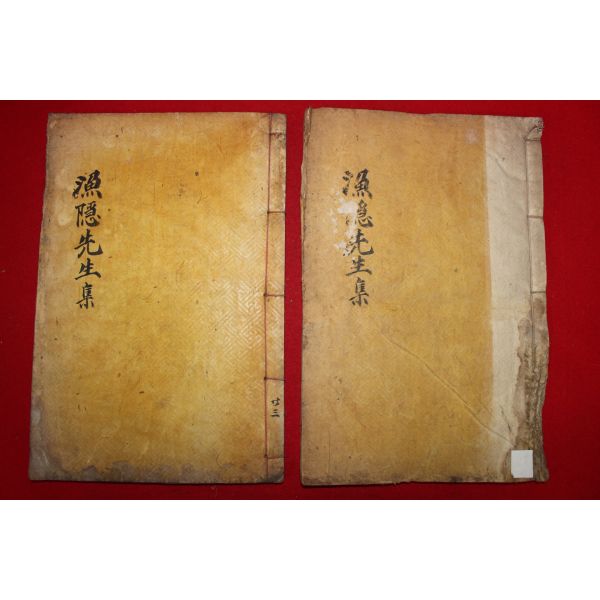 漁隱先生集
漁隱先生集